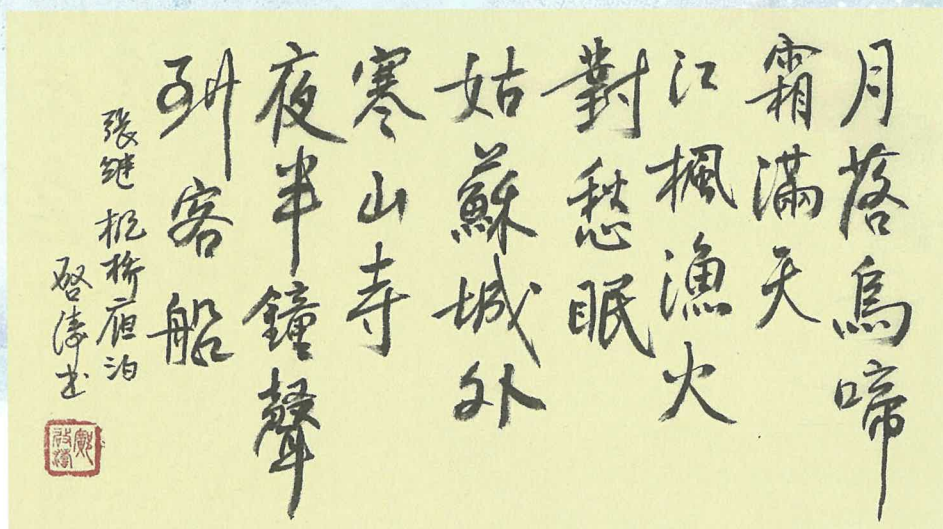 月落烏啼
霜滿天
江楓漁火
對愁眠
姑蘇城外
寒山寺
夜半鐘聲
到客船
張继 枫桥夜泊
啓涛书